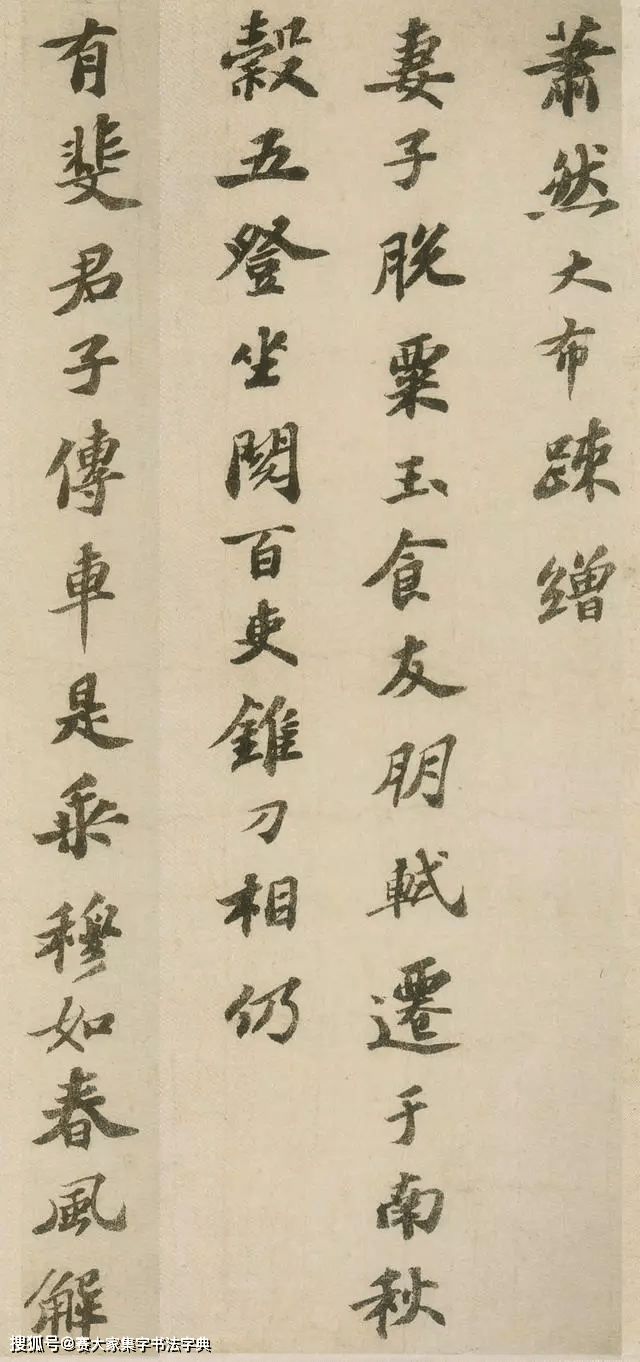 蕭然大布踈繒
妻子脫粟玉食友朋軾遷于南秋
穀五登坐閱百吏錐刀相仍
有斐君子傳車是乘穆如春風解
搜狐号@赛大家集字书法字典